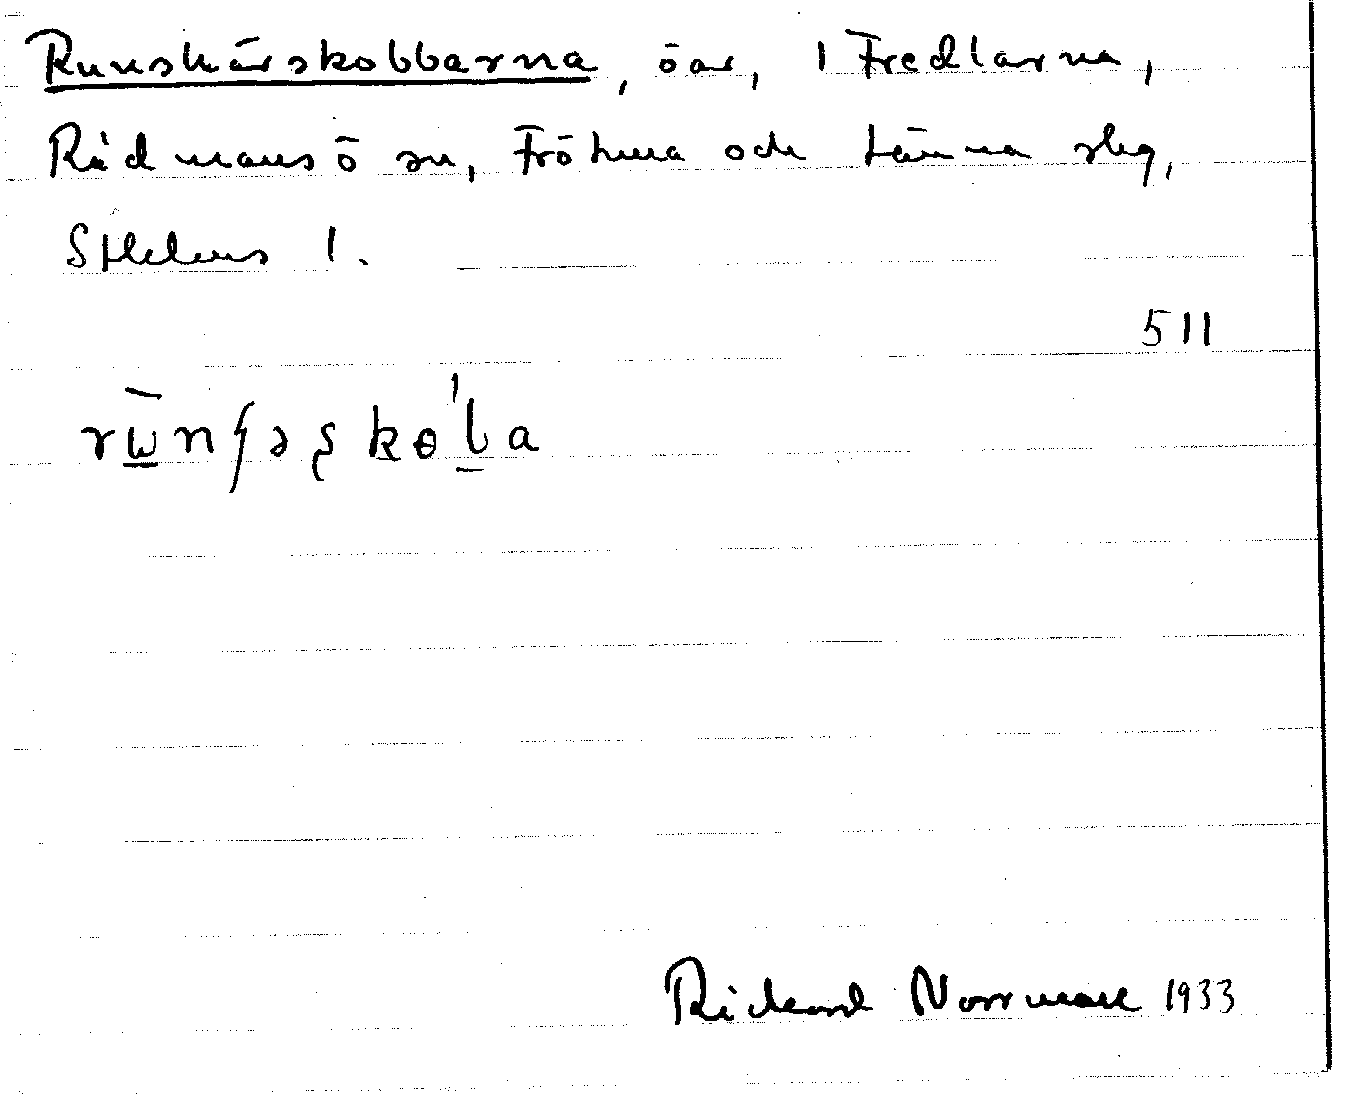 Runskärskobbarna, öar, i Fredlarna,
Rådmansö sn, Fröluna och Länna slg,
Sthlms l.
511
Rickard Norrman 1933